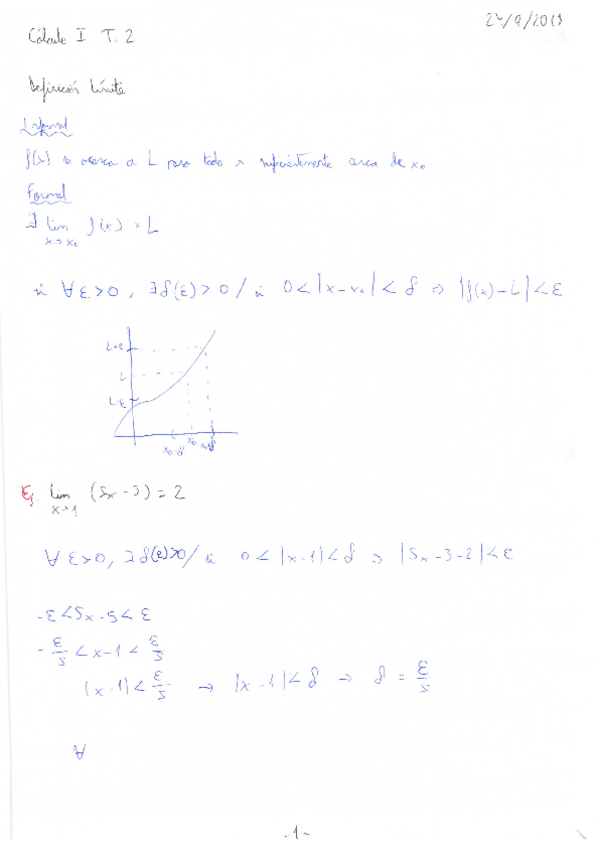 24/9/2018
Cálculo I T. 2
Definición límite
Informal
f(x) se acerca a L para todo x suficientemente cerca de x₀
Formal
∃ lim f(x) = L
x→x₀
si ∀ε>0, ∃δ(ε)>0/si 0<|x-x₀|<δ ⇒ |f(x)-L|<ε
L+ε
L
L-ε
x₀-δ x₀ x₀+δ
Ej. lim (5x-3)=2
x→1
∀ε>0, ∃δ(ε)>0/si 0<|x-1|<δ ⇒ |5x-3-2|<ε
-ε<5x-5<ε
-ε/5<x-1<ε/5
|x-1|<ε/5 → |x-1|<δ → δ=ε/5
∀
-1-